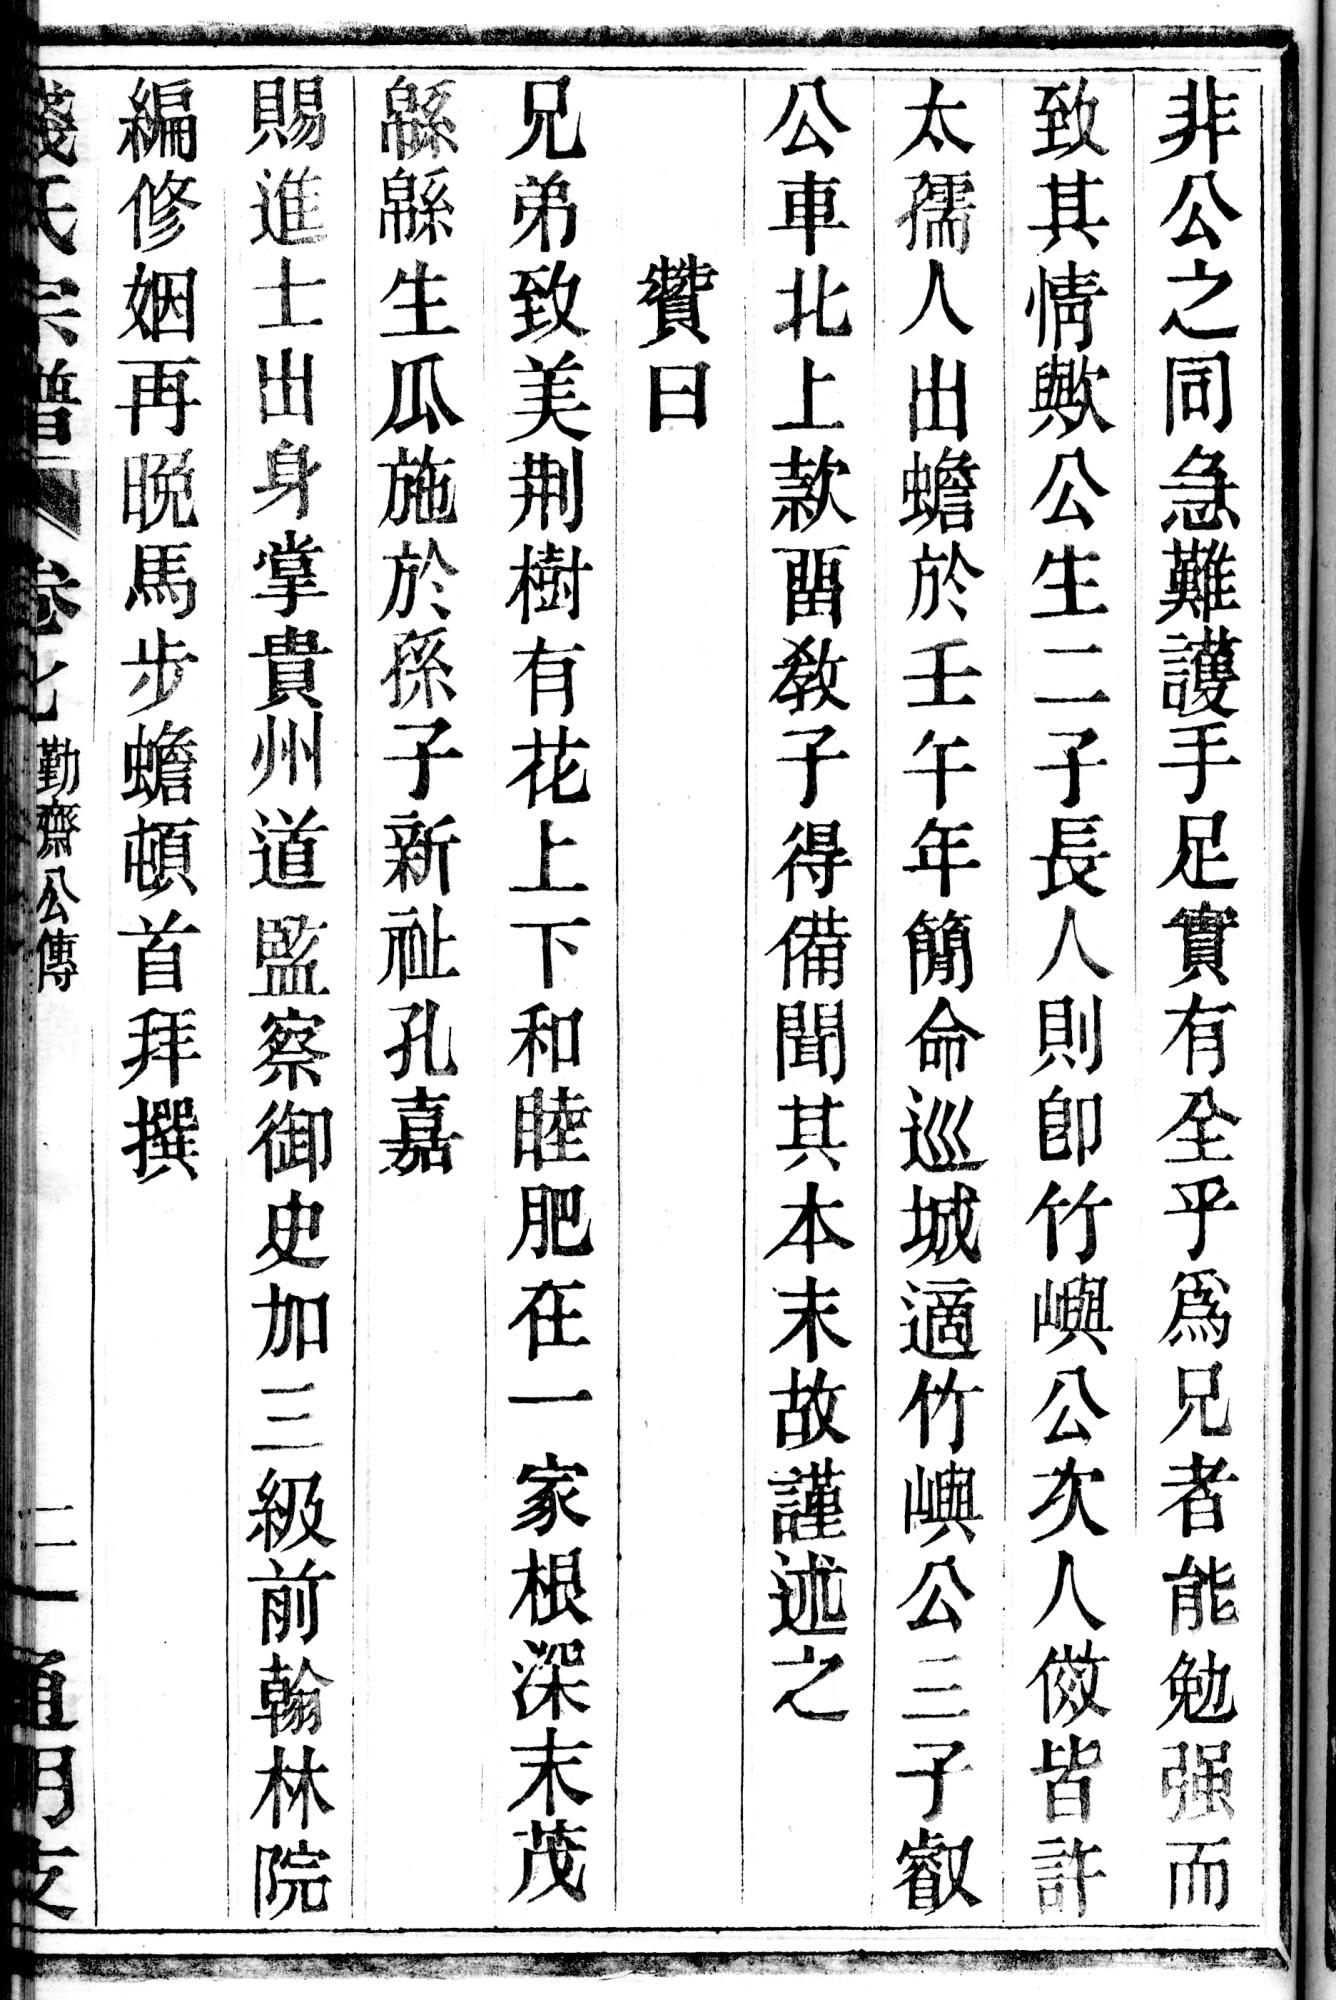 非公之同急難護手足實有全乎爲兄者能勉强而
致其情歟公生二子長人則卽竹嶼公次人傚皆許
太孺人出蟾於壬午年簡命巡城適竹嶼公三子叡
公車北上款畱敎子得備聞其本末故謹述之
贊曰
兄弟致美荆樹有花上下和睦肥在一家根深末茂
緜緜生瓜施於孫子新祉孔嘉
賜進士出身掌貴州道監察御史加三級前翰林院
編修姻再晚馬步蟾頓首拜撰
錢氏宗譜 卷七 勤齋公傳 通明支